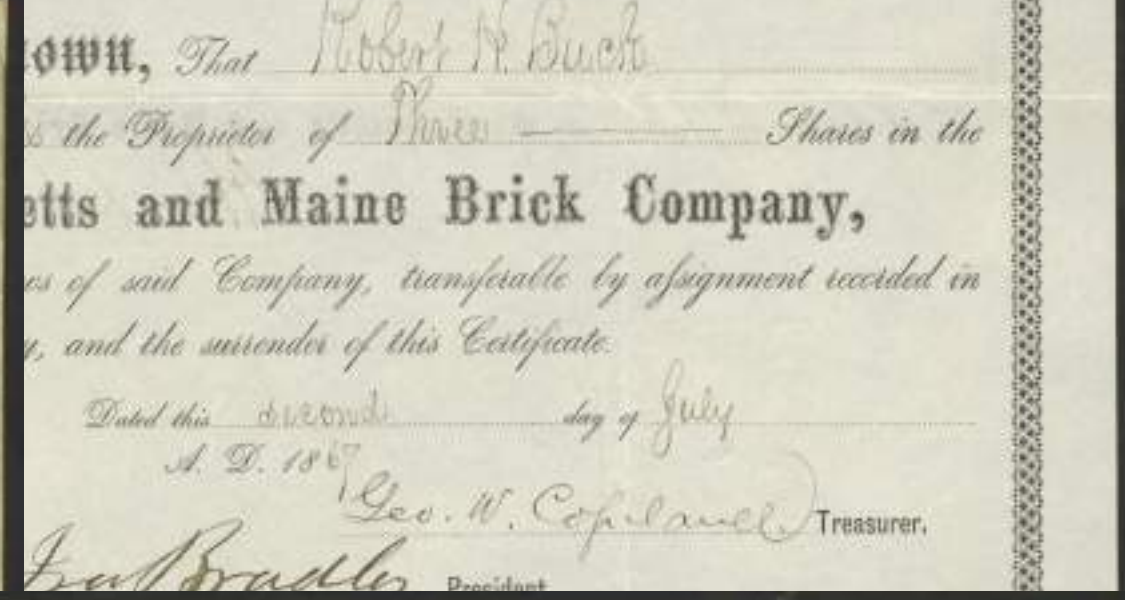 own, That Robert H. Buck
the Proprietor of Three Shares in the
etts and Maine Brick Company,
es of said Company, transferable by assignment recorded in
y, and the surrender of this Certificate.
Dated this second day of July
A. D. 1867
Geo. W. Copeland Treasurer.
Ira Bradley President